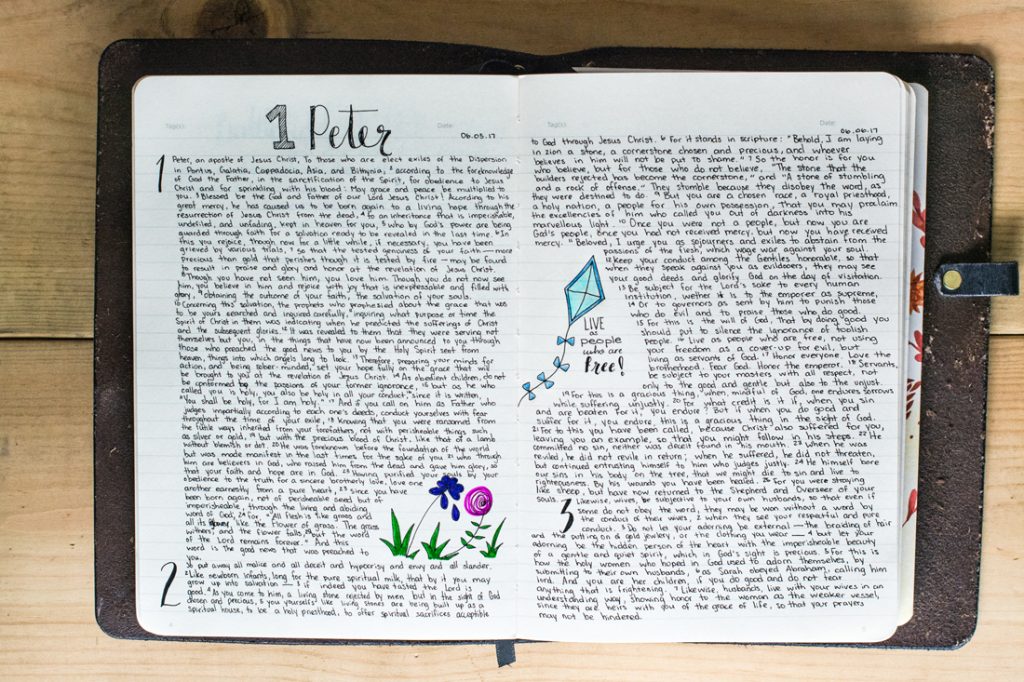 Tag(s):
1 Peter
Date:
06.05.17
1 Peter, an apostle of Jesus Christ, To those who are elect exiles of the Dispersion
in Pontus, Galatia, Cappadocia, Asia, and Bithynia, ² according to the foreknowledge
of God the Father, in the sanctification of the Spirit, for obedience to Jesus
Christ and for sprinkling with his blood: May grace and peace be multiplied to
you. ³ Blessed be the God and Father of our Lord Jesus Christ! According to his
great mercy, he has caused us to be born again to a living hope through the
resurrection of Jesus Christ from the dead, ⁴ to an inheritance that is imperishable,
undefiled, and unfading, kept in heaven for you, ⁵ who by God's power are being
guarded through faith for a salvation ready to be revealed in the last time. ⁶ In
this you rejoice, though now for a little while, if necessary, you have been
grieved by various trials, ⁷ so that the tested genuineness of your faith — more
precious than gold that perishes though it is tested by fire — may be found
to result in praise and glory and honor at the revelation of Jesus Christ.
⁸ Though you have not seen him, you love him. Though you do not now see
him, you believe in him and rejoice with joy that is inexpressable and filled with
glory, ⁹ obtaining the outcome of your faith, the salvation of your souls.
¹⁰ Concerning this salvation, the prophets who prophesied about the grace that was
to be yours searched and inquired carefully, ¹¹ inquiring what purpose or time the
Spirit of Christ in them was indicating when he predicted the sufferings of Christ
and the subsequent glories. ¹² It was revealed to them that they were serving not
themselves but you, in the things that have now been announced to you through
those who preached the good news to you by the Holy Spirit sent from
heaven, things into which angels long to look. ¹³ Therefore, preparing your minds for
action, and being sober-minded, set your hope fully on the grace that will
be brought to you at the revelation of Jesus Christ. ¹⁴ As obedient children, do not
be conformed to the passions of your former ignorance, ¹⁵ but as he who
called you is holy, you also be holy in all your conduct, ¹⁶ since it is written,
"You shall be holy, for I am holy." ¹⁷ And if you call on him as Father who
judges impartially according to each one's deeds, conduct yourselves with fear
throughout the time of your exile, ¹⁸ knowing that you were ransomed from
the futile ways inherited from your forefathers, not with perishable things such
as silver or gold, ¹⁹ but with the precious blood of Christ, like that of a lamb
without blemish or spot. ²⁰ He was foreknown before the foundation of the world
but was made manifest in the last times for the sake of you ²¹ who through
him are believers in God, who raised him from the dead and gave him glory, so
that your faith and hope are in God. ²² Having purified your souls by your
obedience to the truth for a sincere brotherly love, love one
another earnestly from a pure heart, ²³ since you have
been born again, not of perishable seed but of
imperishable, through the living and abiding
word of God; ²⁴ for, "All flesh is like grass and
all its like the flower of grass. The grass
withers, and the flower falls, but the word
of the Lord remains forever." And this
word is the good news that was preached to
you.
2 So put away all malice and all deceit and hypocrisy and envy and all slander.
² Like newborn infants, long for the pure spiritual milk, that by it you may
grow up into salvation — ³ if indeed you have tasted the Lord is
good. ⁴ As you come to him, a living stone rejected by men but in the sight of God
chosen and precious, ⁵ you yourselves like living stones are being built up as a
spiritual house, to be a holy priesthood, to offer spiritual sacrifices acceptible
Date:
06.06.17
to God through Jesus Christ. ⁶ For it stands in scripture: "Behold, I am laying
in zion a stone, a cornerstone chosen and precious, and whoever
believes in him will not be put to shame." ⁷ So the honor is for you
who believe, but for those who do not believe, "The stone that the
builders rejected has become the cornerstone," ⁸ and "A stone of stumbling
and a rock of offense." They stumble because they disobey the word, as
they were destined to do. ⁹ But you are a chosen race, a royal priesthood,
a holy nation, a people for his own possession, that you may proclaim
the excellencies of him who called you out of darkness into his
marvellous light. ¹⁰ Once you were not a people, but now you are
God's people, once you had not received mercy, but now you have received
mercy. ¹¹ Beloved, I urge you as sojourners and exiles to abstain from the
passions of the flesh, which wage war against your soul.
¹² Keep your conduct among the Gentiles honorable, so that
when they speak against you as evildoers, they may see
your good deeds and glorify God on the day of visitation.
¹³ Be subject for the Lord's sake to every human
institution, wether it is to the emperor as supreme,
¹⁴ or to governors as sent by him to punish those
who do evil and to praise those who do good.
¹⁵ For this is the will of God, that by doing good you
should put to silence the ignorance of foolish
people. ¹⁶ Live as people who are free, not using
your freedom as a cover-up for evil, but
living as servants of God. ¹⁷ Honor everyone. Love the
brotherhood. Fear God. Honor the emperor. ¹⁸ Servants,
be subject to your masters with all respect, not
only to the good and gentle but also to the unjust.
LIVE
as
people
who are
Free!
¹⁹ For this is a gracious thing, when, mindful of God, one endures sorrows
while suffering unjustly. ²⁰ For what credit is it if, when you sin
and are beaten for it, you endure? But if when you do good and
suffer for it, you endure, this is a gracious thing in the sight of God.
²¹ For to this you have been called, because Christ also suffered for you,
leaving you an example, so that you might follow in his steps. ²² He
committed no sin, neither was deceit found in his mouth. ²³ When he was
reviled, he did not revile in return; when he suffered, he did not threaten,
but continued entrusting himself to him who judges justly. ²⁴ He himself bore
our sins in his body on the tree, that we might die to sin and live to
righteousness. By his wounds you have been healed. ²⁵ For you were straying
like sheep, but have now returned to the Shepherd and Overseer of your
souls.
3 Likewise, wives, be subjective to your own husbands, so that even if
some do not obey the word, they may be won without a word by
the conduct of their wives, ² when they see your respectful and pure
conduct. ³ Do not let your adorning be external — the braiding of hair
and the putting on of gold jewelry, or the clothing you wear — ⁴ but let your
adorning be the hidden person of the heart with the imperishable beauty
of a gentle and quiet spirit, which in God's sight is precious. ⁵ For this is
how the holy women who hoped in God used to adorn themselves, by
submitting to their own husbands, ⁶ as Sarah obeyed Abraham, calling him
lord. And you are her children, if you do good and do not fear
anything that is frightening. ⁷ Likewise, husbands, live with your wives in an
understanding way, showing honor to the woman as the weaker vessel,
since they are heirs with you of the grace of life, so that your prayers
may not be hindered.